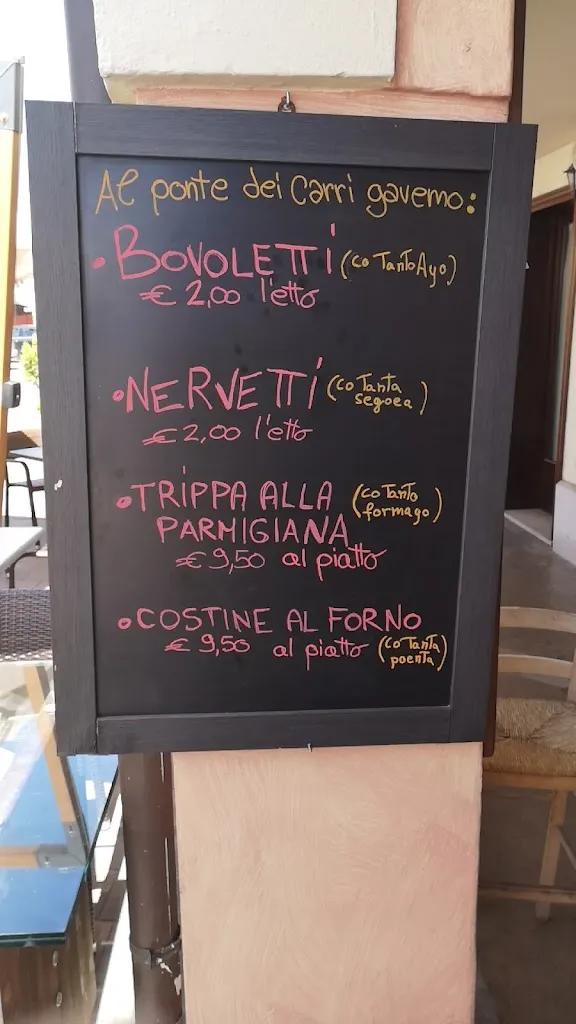 Al ponte dei Carri gavemo:
• BOVOLETTi (co Tanto Ayo)
€ 2,00 l'etto
• NERVETTi (co Tanta
segoea)
€ 2,00 l'etto
• TRiPPA ALLA (co Tanto
formago)
PARMIGIANA
€ 9,50 al piatto
• COSTINE AL FORNO
€ 9,50 al piatto (co Tanta
poenta)